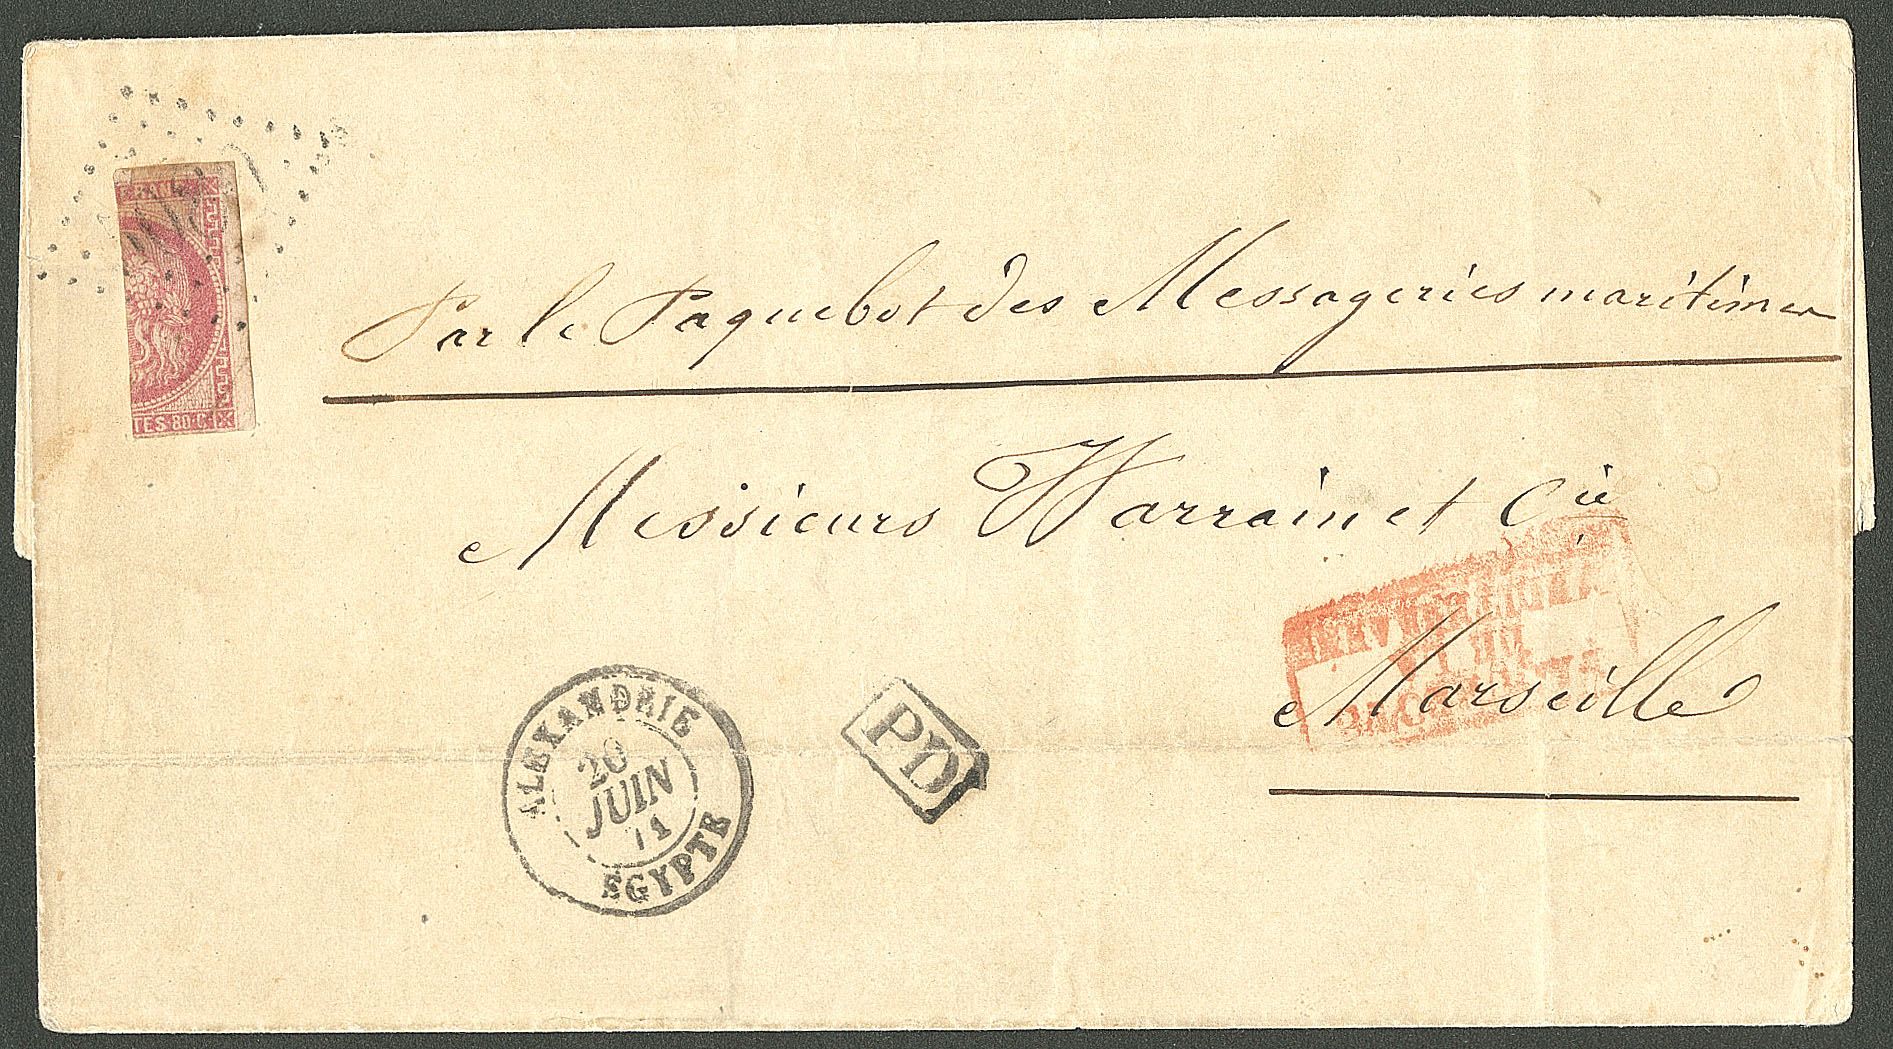 FRANÇ
TES·80·C
Par le Paquebot des Messageries maritimes
Messieurs Warrain et Cie
Marseille
ALEXANDRIE
20
JUIN
71
EGYPTE
PD